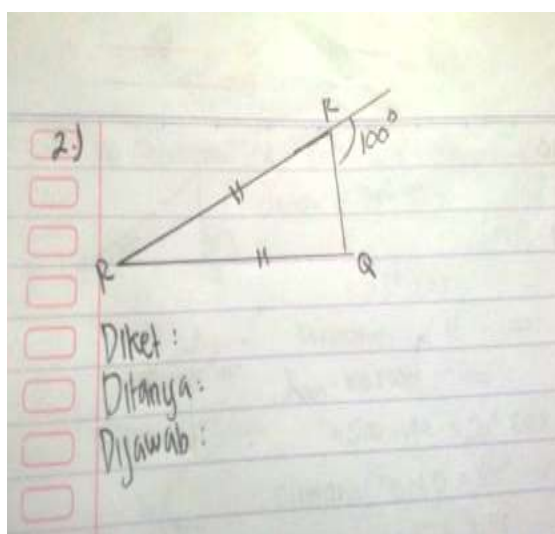 2.)
R
100°
R
Q
Diket :
Ditanya :
Dijawab :